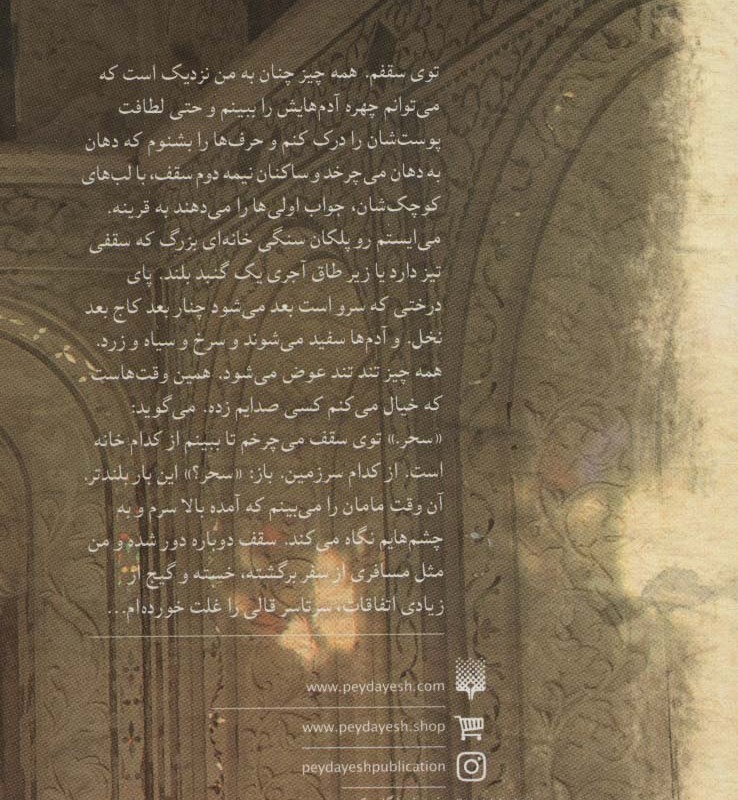 توی سقفم. همه چیز چنان به من نزدیک است که
می‌توانم چهره آدم‌هایش را ببینم و حتی لطافت
پوست‌شان را درک کنم و حرف‌ها را بشنوم که دهان
به دهان می‌چرخد و ساکنان نیمه دوم سقف، با لب‌های
کوچک‌شان، جواب اولی‌ها را می‌دهند به قرینه.
می‌ایستم رو پلکان سنگی خانه‌ای بزرگ که سقفی
تیز دارد یا زیر طاق آجری یک گنبد بلند. پای
درختی که سرو است بعد می‌شود چنار بعد کاج بعد
نخل. و آدم‌ها سفید می‌شوند و سرخ و سیاه و زرد.
همه چیز تند تند عوض می‌شود. همین وقت‌هاست
که خیال می‌کنم کسی صدایم زده. می‌گوید:
«سحر.» توی سقف می‌چرخم تا ببینم از کدام خانه
است. از کدام سرزمین. باز: «سحر؟» این بار بلندتر.
آن وقت مامان را می‌بینم که آمده بالا سرم و به
چشم‌هایم نگاه می‌کند. سقف دوباره دور شده و من
مثل مسافری از سفر برگشته، خسته و گیج از
زیادی اتفاقات، سرتاسر قالی را غلت خورده‌ام...
www.peydayesh.com
www.peydayesh.shop
peydayeshpublication